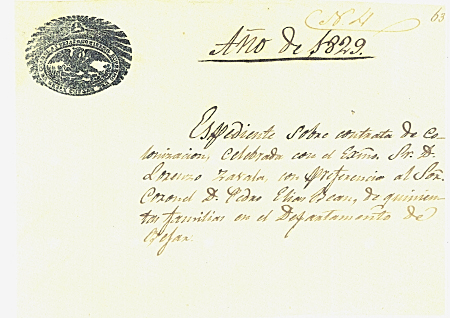 N. 4
63
Año de 1829.
Espediente sobre contrata de co-
lonizacion, celebrada con el Exmo. Sr. D.
Lorenzo Zavala, con preferencia al Señ.
Coronel D. Pedro Elias Bean, de quinien-
tas familias en el Departamento de
Bejar.